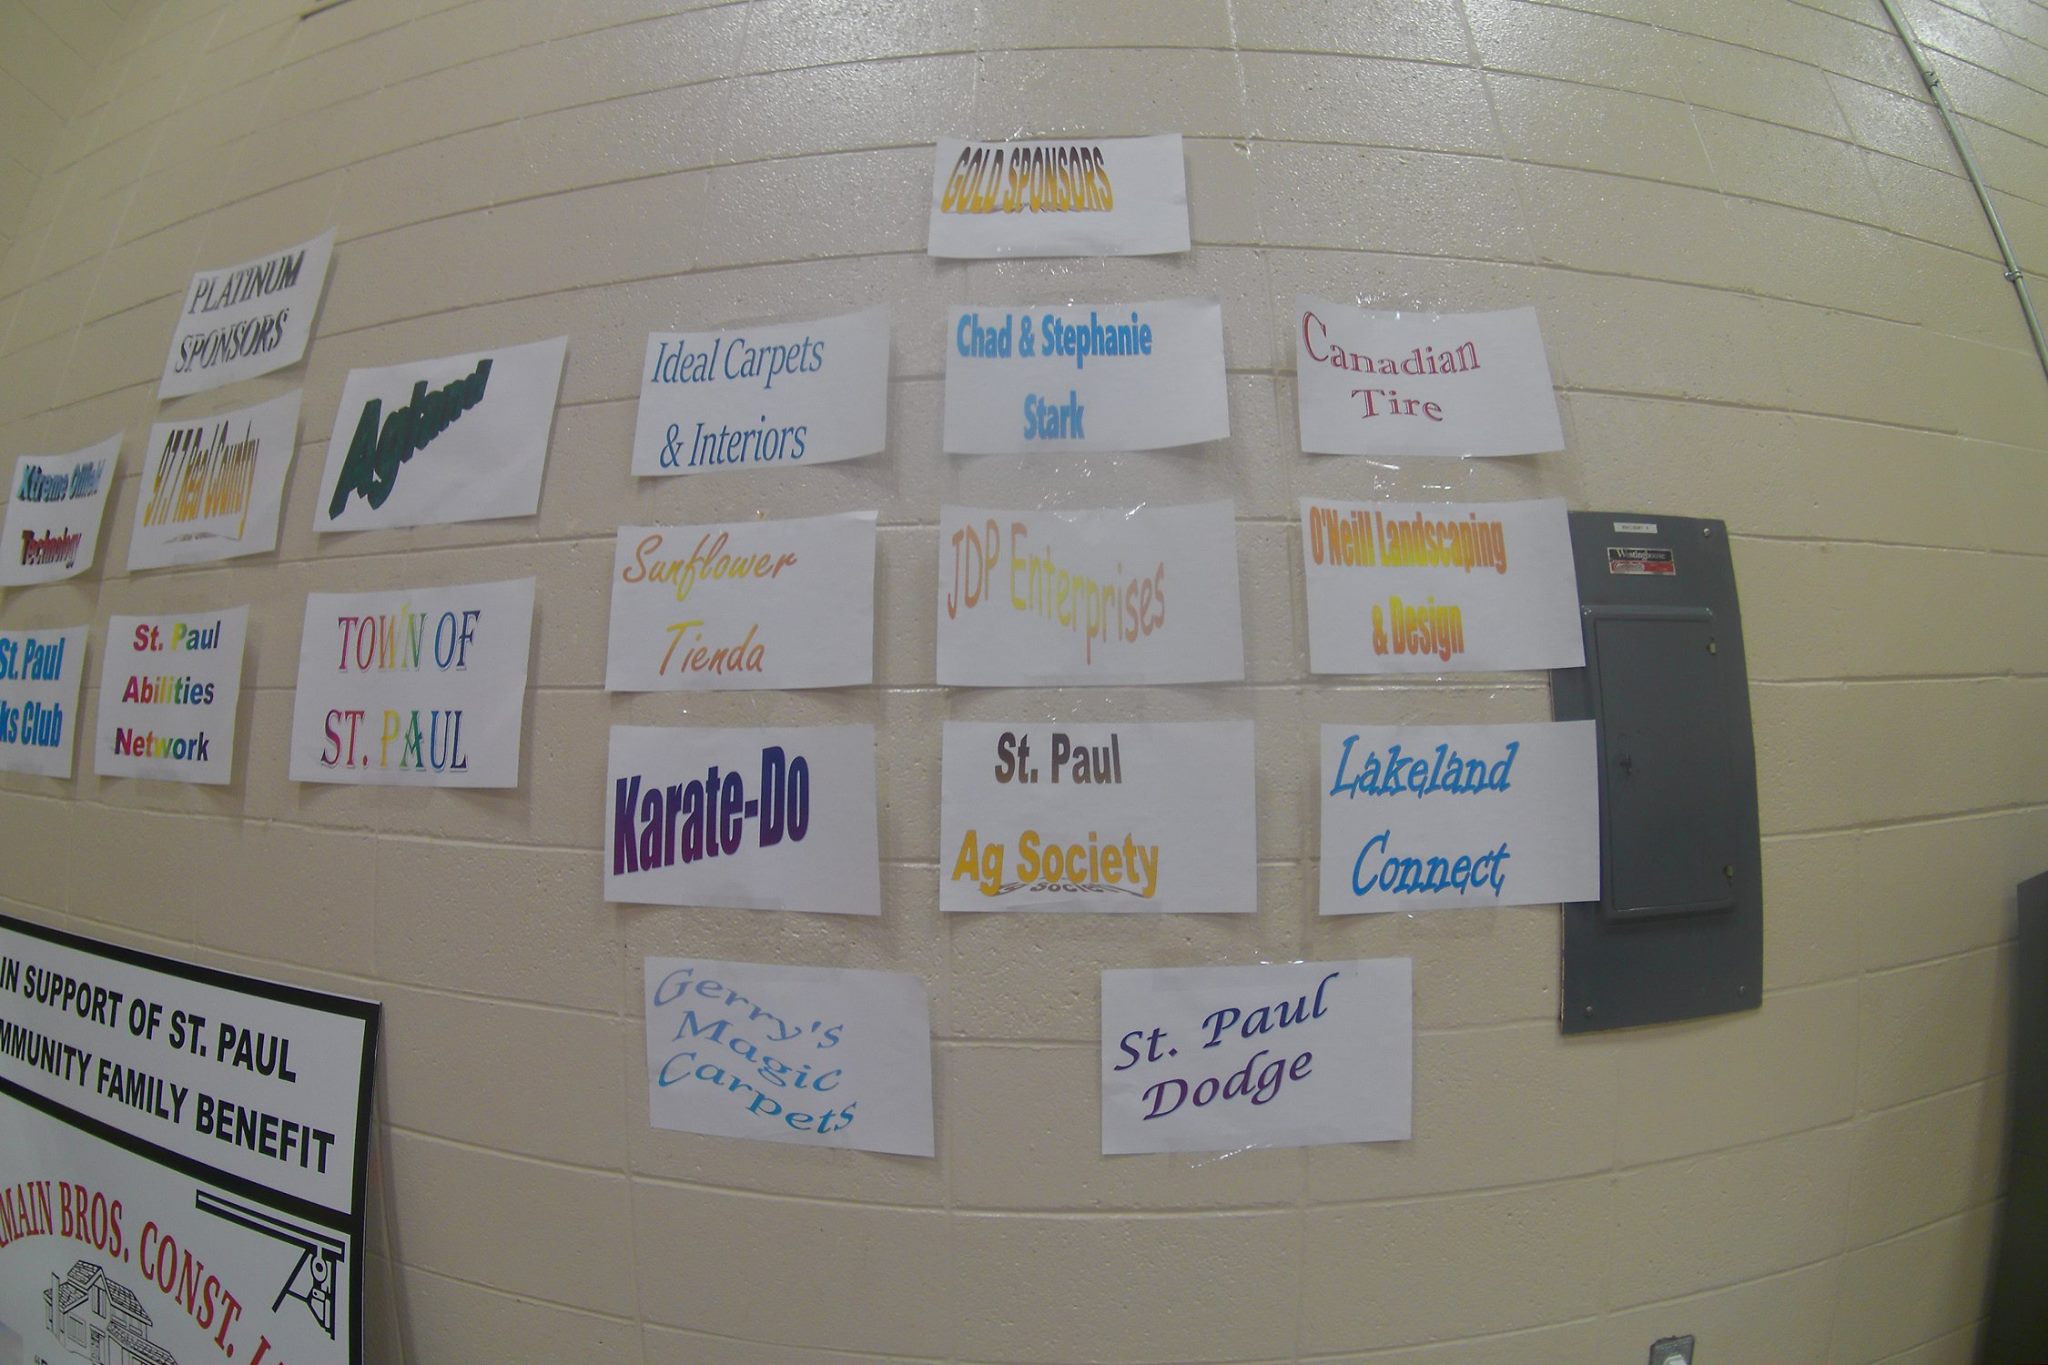 GOLD SPONSORS
PLATINUM
SPONSORS
Xtreme Oilfield
Technology
97.7 Real Country
Agland
St. Paul
ks Club
St. Paul
Abilities
Network
TOWN OF
ST. PAUL
Ideal Carpets
& Interiors
Chad & Stephanie
Stark
Canadian
Tire
Sunflower
Tienda
JDP Enterprises
O'Neill Landscaping
& Design
Karate-Do
St. Paul
Ag Society
Lakeland
Connect
Gerry's
Magic
Carpets
St. Paul
Dodge
Westinghouse
IN SUPPORT OF ST. PAUL
MMUNITY FAMILY BENEFIT
MAIN BROS. CONST.